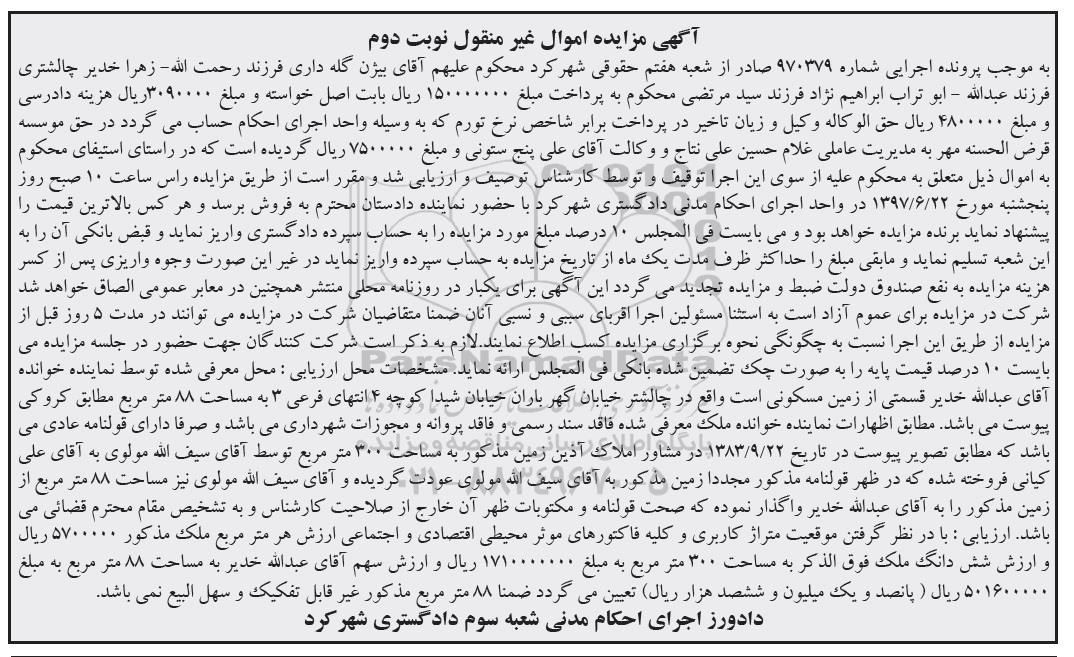 آگهی مزایده اموال غیر منقول نوبت دوم
به موجب پرونده اجرایی شماره ۹۷۰۳۷۹ صادر از شعبه هفتم حقوقی شهرکرد محکوم علیهم آقای بیژن گله داری فرزند رحمت الله- زهرا خدیر چالشتری
فرزند عبدالله - ابو تراب ابراهیم نژاد فرزند سید مرتضی محکوم به پرداخت مبلغ ۱۵۰۰۰۰۰۰۰ ریال بابت اصل خواسته و مبلغ ۳۰۹۰۰۰۰ریال هزینه دادرسی
و مبلغ ۴۸۰۰۰۰۰ ریال حق الوکاله وکیل و زیان تاخیر در پرداخت برابر شاخص نرخ تورم که به وسیله واحد اجرای احکام حساب می گردد در حق موسسه
قرض الحسنه مهر به مدیریت عاملی غلام حسین علی نتاج و وکالت آقای علی پنج ستونی و مبلغ ۷۵۰۰۰۰۰ ریال گردیده است که در راستای استیفای محکوم
به اموال ذیل متعلق به محکوم علیه از سوی این اجرا توقیف و توسط کارشناس توصیف و ارزیابی شد و مقرر است از طریق مزایده راس ساعت ۱۰ صبح روز
پنجشنبه مورخ ۱۳۹۷/۶/۲۲ در واحد اجرای احکام مدنی دادگستری شهرکرد با حضور نماینده دادستان محترم به فروش برسد و هر کس بالاترین قیمت را
پیشنهاد نماید برنده مزایده خواهد بود و می بایست فی المجلس ۱۰ درصد مبلغ مورد مزایده را به حساب سپرده دادگستری واریز نماید و قبض بانکی آن را به
این شعبه تسلیم نماید و مابقی مبلغ را حداکثر ظرف مدت یک ماه از تاریخ مزایده به حساب سپرده واریز نماید در غیر این صورت وجوه واریزی پس از کسر
هزینه مزایده به نفع صندوق دولت ضبط و مزایده تجدید می گردد این آگهی برای یکبار در روزنامه محلی منتشر همچنین در معابر عمومی الصاق خواهد شد
شرکت در مزایده برای عموم آزاد است به استثنا مسئولین اجرا اقربای سببی و نسبی آنان ضمنا متقاضیان شرکت در مزایده می توانند در مدت ۵ روز قبل از
مزایده از طریق این اجرا نسبت به چگونگی نحوه برگزاری مزایده کسب اطلاع نمایند.لازم به ذکر است شرکت کنندگان جهت حضور در جلسه مزایده می
بایست ۱۰ درصد قیمت پایه را به صورت چک تضمین شده بانکی فی المجلس ارائه نماید. مشخصات محل ارزیابی : محل معرفی شده توسط نماینده خوانده
آقای عبدالله خدیر قسمتی از زمین مسکونی است واقع در چالشتر خیابان گهر باران خیابان شیدا کوچه ۴ انتهای فرعی ۳ به مساحت ۸۸ متر مربع مطابق کروکی
پیوست می باشد. مطابق اظهارات نماینده خوانده ملک معرفی شده فاقد سند رسمی و فاقد پروانه و مجوزات شهرداری می باشد و صرفا دارای قولنامه عادی می
باشد که مطابق تصویر پیوست در تاریخ ۱۳۸۳/۹/۲۲ در مشاور املاک آذین زمین مذکور به مساحت ۳۰۰ متر مربع توسط آقای سیف الله مولوی به آقای علی
کیانی فروخته شده که در ظهر قولنامه مذکور مجددا زمین مذکور به آقای سیف الله مولوی عودت گردیده و آقای سیف الله مولوی نیز مساحت ۸۸ متر مربع از
زمین مذکور را به آقای عبدالله خدیر واگذار نموده که صحت قولنامه و مکتوبات ظهر آن خارج از صلاحیت کارشناس و به تشخیص مقام محترم قضائی می
باشد. ارزیابی : با در نظر گرفتن موقعیت متراژ کاربری و کلیه فاکتورهای موثر محیطی اقتصادی و اجتماعی ارزش هر متر مربع ملک مذکور ۵۷۰۰۰۰۰ ریال
و ارزش شش دانگ ملک فوق الذکر به مساحت ۳۰۰ متر مربع به مبلغ ۱۷۱۰۰۰۰۰۰۰ ریال و ارزش سهم آقای عبدالله خدیر به مساحت ۸۸ متر مربع به مبلغ
۵۰۱۶۰۰۰۰۰ ریال ( پانصد و یک میلیون و ششصد هزار ریال) تعیین می گردد ضمنا ۸۸ متر مربع مذکور غیر قابل تفکیک و سهل البیع نمی باشد.
دادورز اجرای احکام مدنی شعبه سوم دادگستری شهرکرد
ParsNamadData
پایگاه اطلاع رسانی مناقصه و مزایده
۰۲۱-۸۸۳۴۹۶۷۰-۵